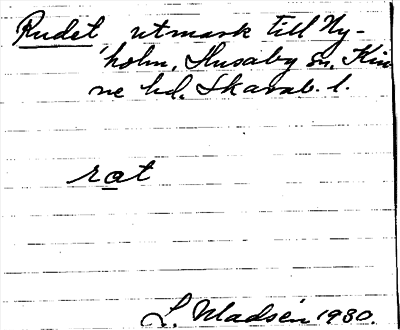 Rudet utmark till Ny-
holm, Husaby sn. Kin
ne hd. Skarab. l.
rat
L. Madsén 1930.